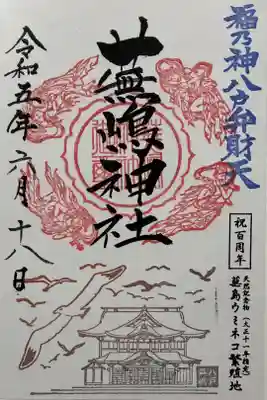 福乃神八戸弁財天
蕪嶋神社
令和五年六月十八日
祝百周年
天然記念物(大正十一年指定)
蕪島ウミネコ繁殖地